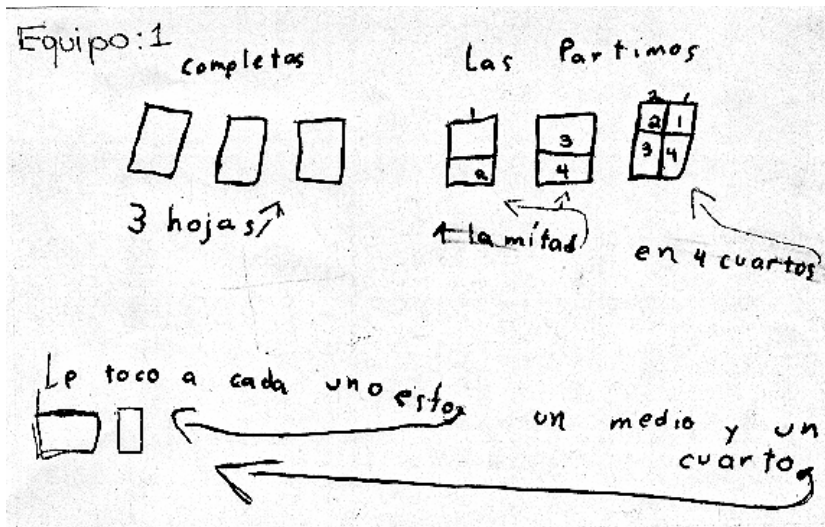 Equipo: 1
completas
Las Partimos
1
2
3
4
2 1
2 1
3 4
3 hojas
a la mitad
en 4 cuartos
Le toco a cada uno esto
un medio y un
cuarto